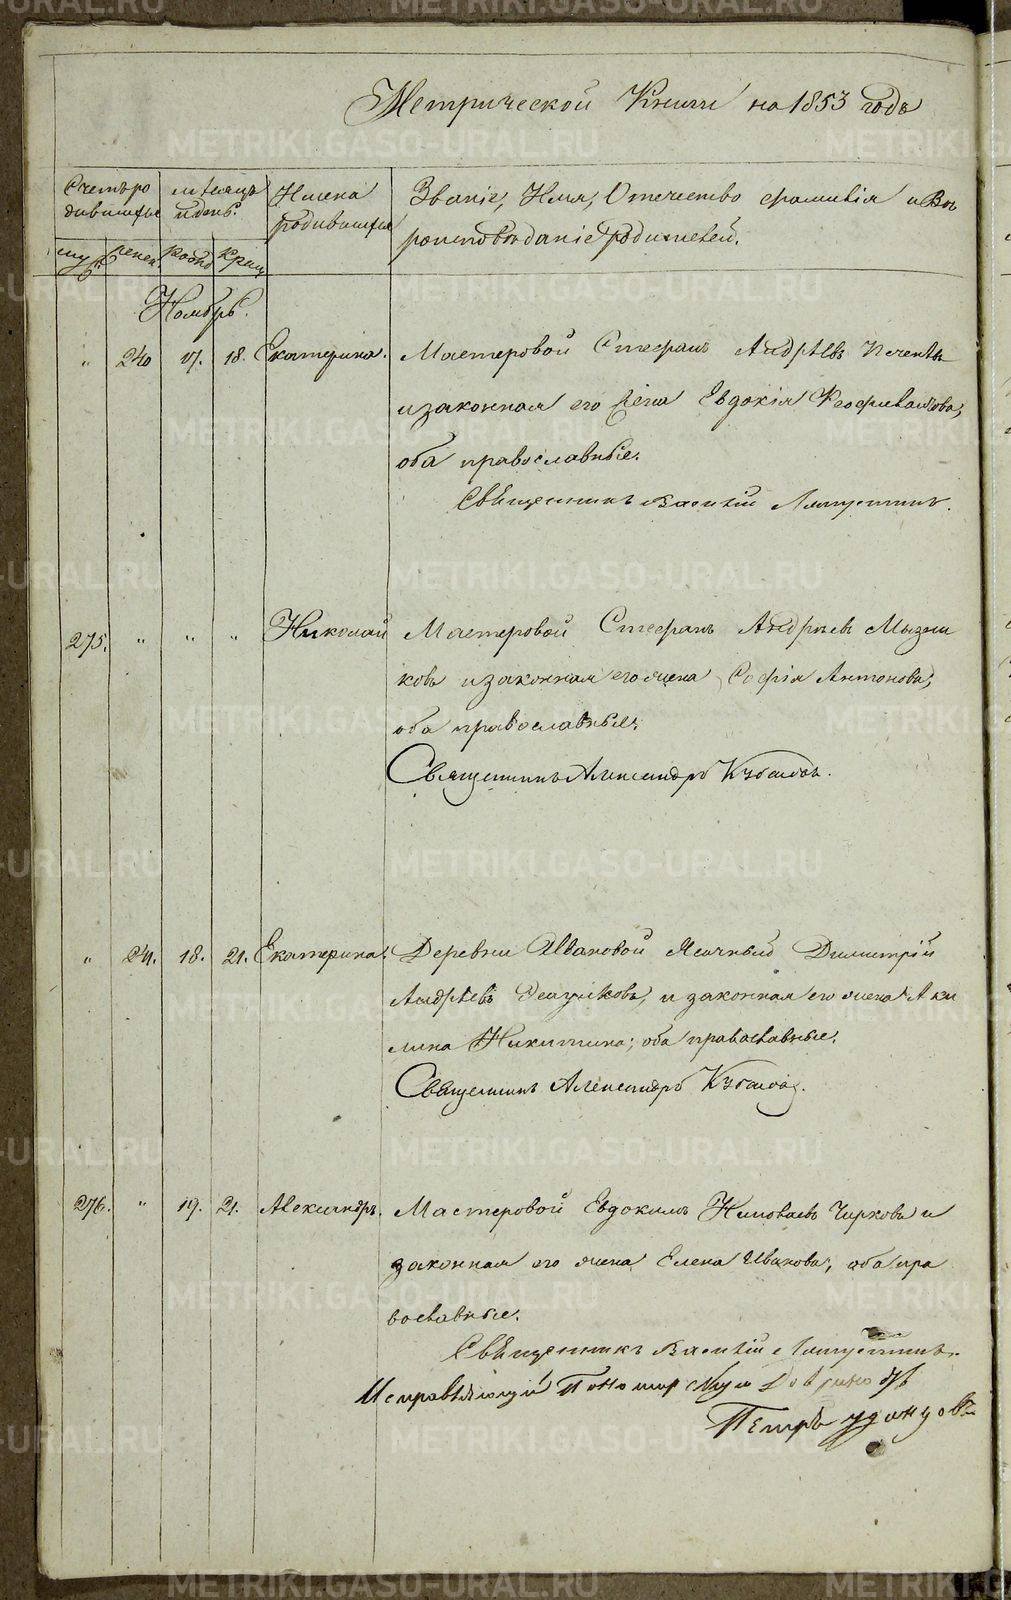 Метрической Книги на 1853 годъ
Счетъ ро
дившихся
мѣсяцъ
и день.
Имена
родившихся
Званіе, Имя, Отчество фамилія и Вѣ
роисповѣданіе родителей.
муж. женск. рожд. крещ.
Ноябрь.
" 240 17. 18. Екатерина. Мастеровой Стефанъ Андрѣевъ
и законная его жена Евдокія Феофилактова,
оба православные.
Священникъ Василій Ляпустинъ.
275. " " " Николай Мастеровой Стефанъ Андрѣевъ Мызни
ковъ и законная его жена Софія Антонова;
оба православные;
Священникъ Александръ Кубасовъ.
" 241. 18. 21. Екатерина. Деревни Ивановой Ясачный Димитрій
Андрѣевъ и законная его жена Аки
лина Никитина; оба православные.
Священникъ Александръ Кубасовъ.
276. " 19. 21. Александръ. Мастеровой Евдокимъ Чирковъ и
законная его жена Елена Иванова; оба пра
вославные.
Священникъ Василій Ляпустинъ.
Исправляющій Пономарскую Должность
Петръ Удинцовъ
METRIKI.GASO-URAL.RU